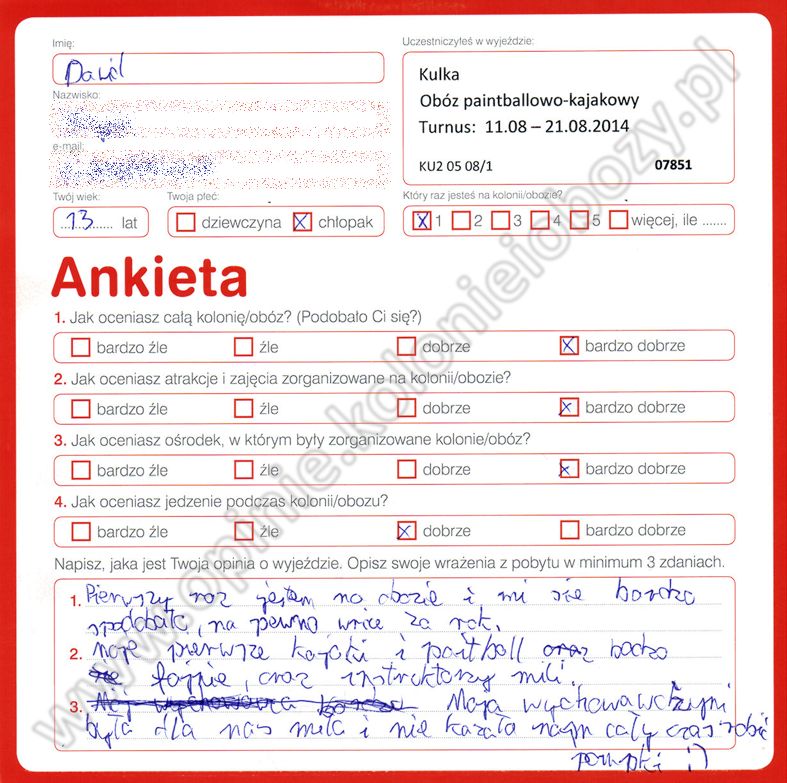 Imię:
Dawid
Uczestniczyłeś w wyjeździe:
Kulka
Obóz paintballowo-kajakowy
Turnus: 11.08 – 21.08.2014
KU2 05 08/1 07851
Nazwisko:
e-mail:
Twój wiek:
13 lat
Twoja płeć:
dziewczyna chłopak
Który raz jesteś na kolonii/obozie?
1 2 3 4 5 więcej, ile .......
Ankieta
1. Jak oceniasz całą kolonię/obóz? (Podobało Ci się?)
bardzo źle źle dobrze bardzo dobrze
2. Jak oceniasz atrakcje i zajęcia zorganizowane na kolonii/obozie?
bardzo źle źle dobrze bardzo dobrze
3. Jak oceniasz ośrodek, w którym były zorganizowane kolonie/obóz?
bardzo źle źle dobrze bardzo dobrze
4. Jak oceniasz jedzenie podczas kolonii/obozu?
bardzo źle źle dobrze bardzo dobrze
Napisz, jaka jest Twoja opinia o wyjeździe. Opisz swoje wrażenia z pobytu w minimum 3 zdaniach.
1. Pierwszy raz jestem na obozie i mi sie bardzo
spodobało, na pewno wrice za rok.
2. Moje pierwsze kajaki i paitball oraz badzo
fajnie, oraz instruktorzy mili.
3. Moja wychowawczyni
była dla nas miła i nie kazała nam cały czas robić
pompki ;)
www.opinie.kolonieiobozy.pl